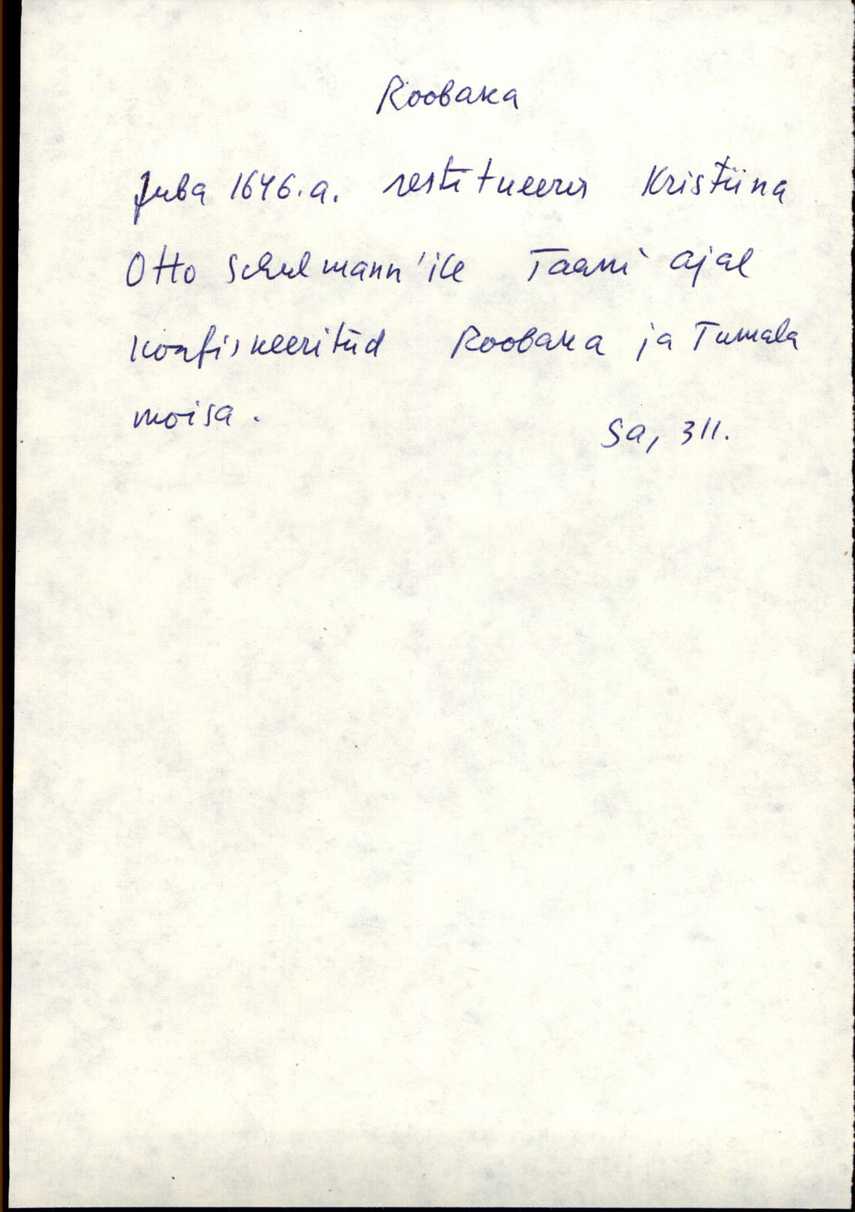 Roobaka
Juba 1646.a. restitueeris Kristiina
Otto Schulmann'ile Taani ajal
konfiskeeritud Roobaka ja Tumala
moisa.
Sa, 311.